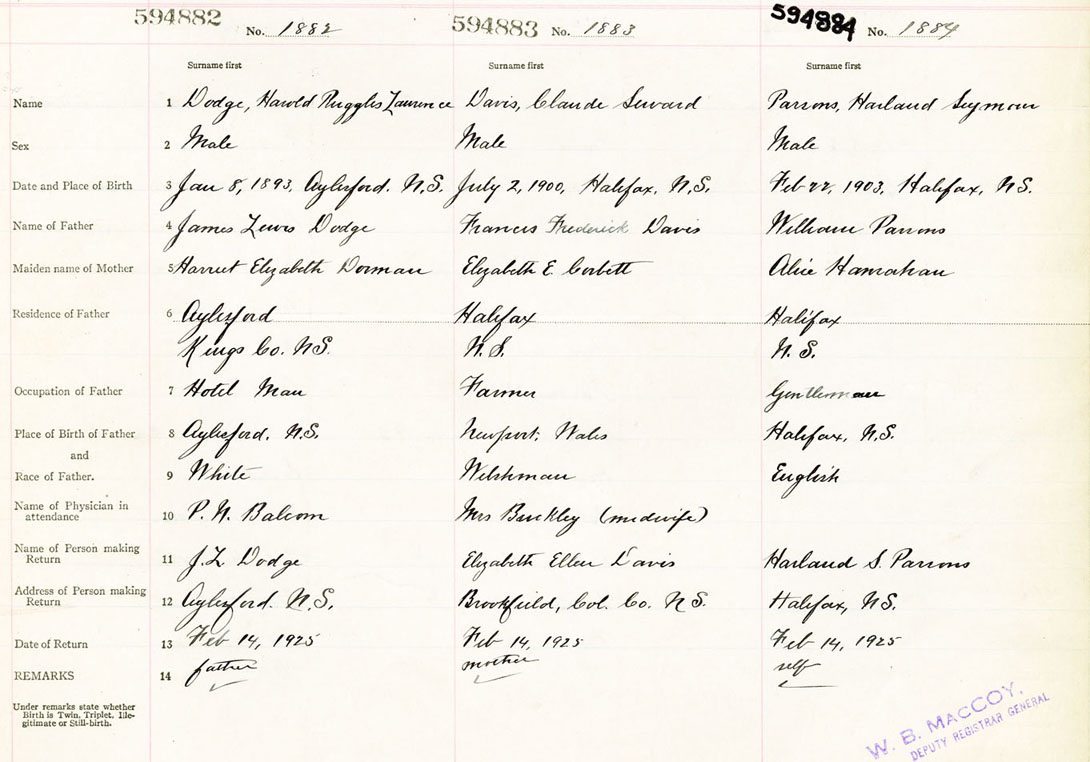 594882 No. 1882 594883 No. 1883 594884 No. 1884
Surname first Surname first Surname first
Name 1 Dodge, Harold Ruggles Lawrence Davis, Claude Seward Parsons, Harland Seymour
Sex 2 Male Male Male
Date and Place of Birth 3 Jan 8, 1893, Aylesford. N.S. July 2, 1900, Halifax, N.S. Feb 22, 1903, Halifax, N.S.
Name of Father 4 James Lewis Dodge Francis Frederick Davis William Parsons
Maiden name of Mother 5 Harriet Elizabeth Dorman Elizabeth E. Corbett Alice Hanrahan
Residence of Father 6 Aylesford Halifax Halifax
Kings Co. N.S. N.S. N.S.
Occupation of Father 7 Hotel Man Farmer Gentleman
Place of Birth of Father 8 Aylesford, N.S. Newport, Wales Halifax, N.S.
and
Race of Father. 9 White Welshman English
Name of Physician in
attendance 10 P. N. Balcom Mrs Buckley (midwife)
Name of Person making
Return 11 J.L. Dodge Elizabeth Ellen Davis Harland S. Parsons
Address of Person making
Return 12 Aylesford. N.S. Brookfield, Col. Co. N.S. Halifax, N.S.
Date of Return 13 Feb 14, 1925 Feb 14, 1925 Feb 14, 1925
REMARKS 14 father mother self
Under remarks state whether
Birth is Twin, Triplet, Ille-
gitimate or Still-birth.
W. B. MACCOY,
DEPUTY REGISTRAR GENERAL